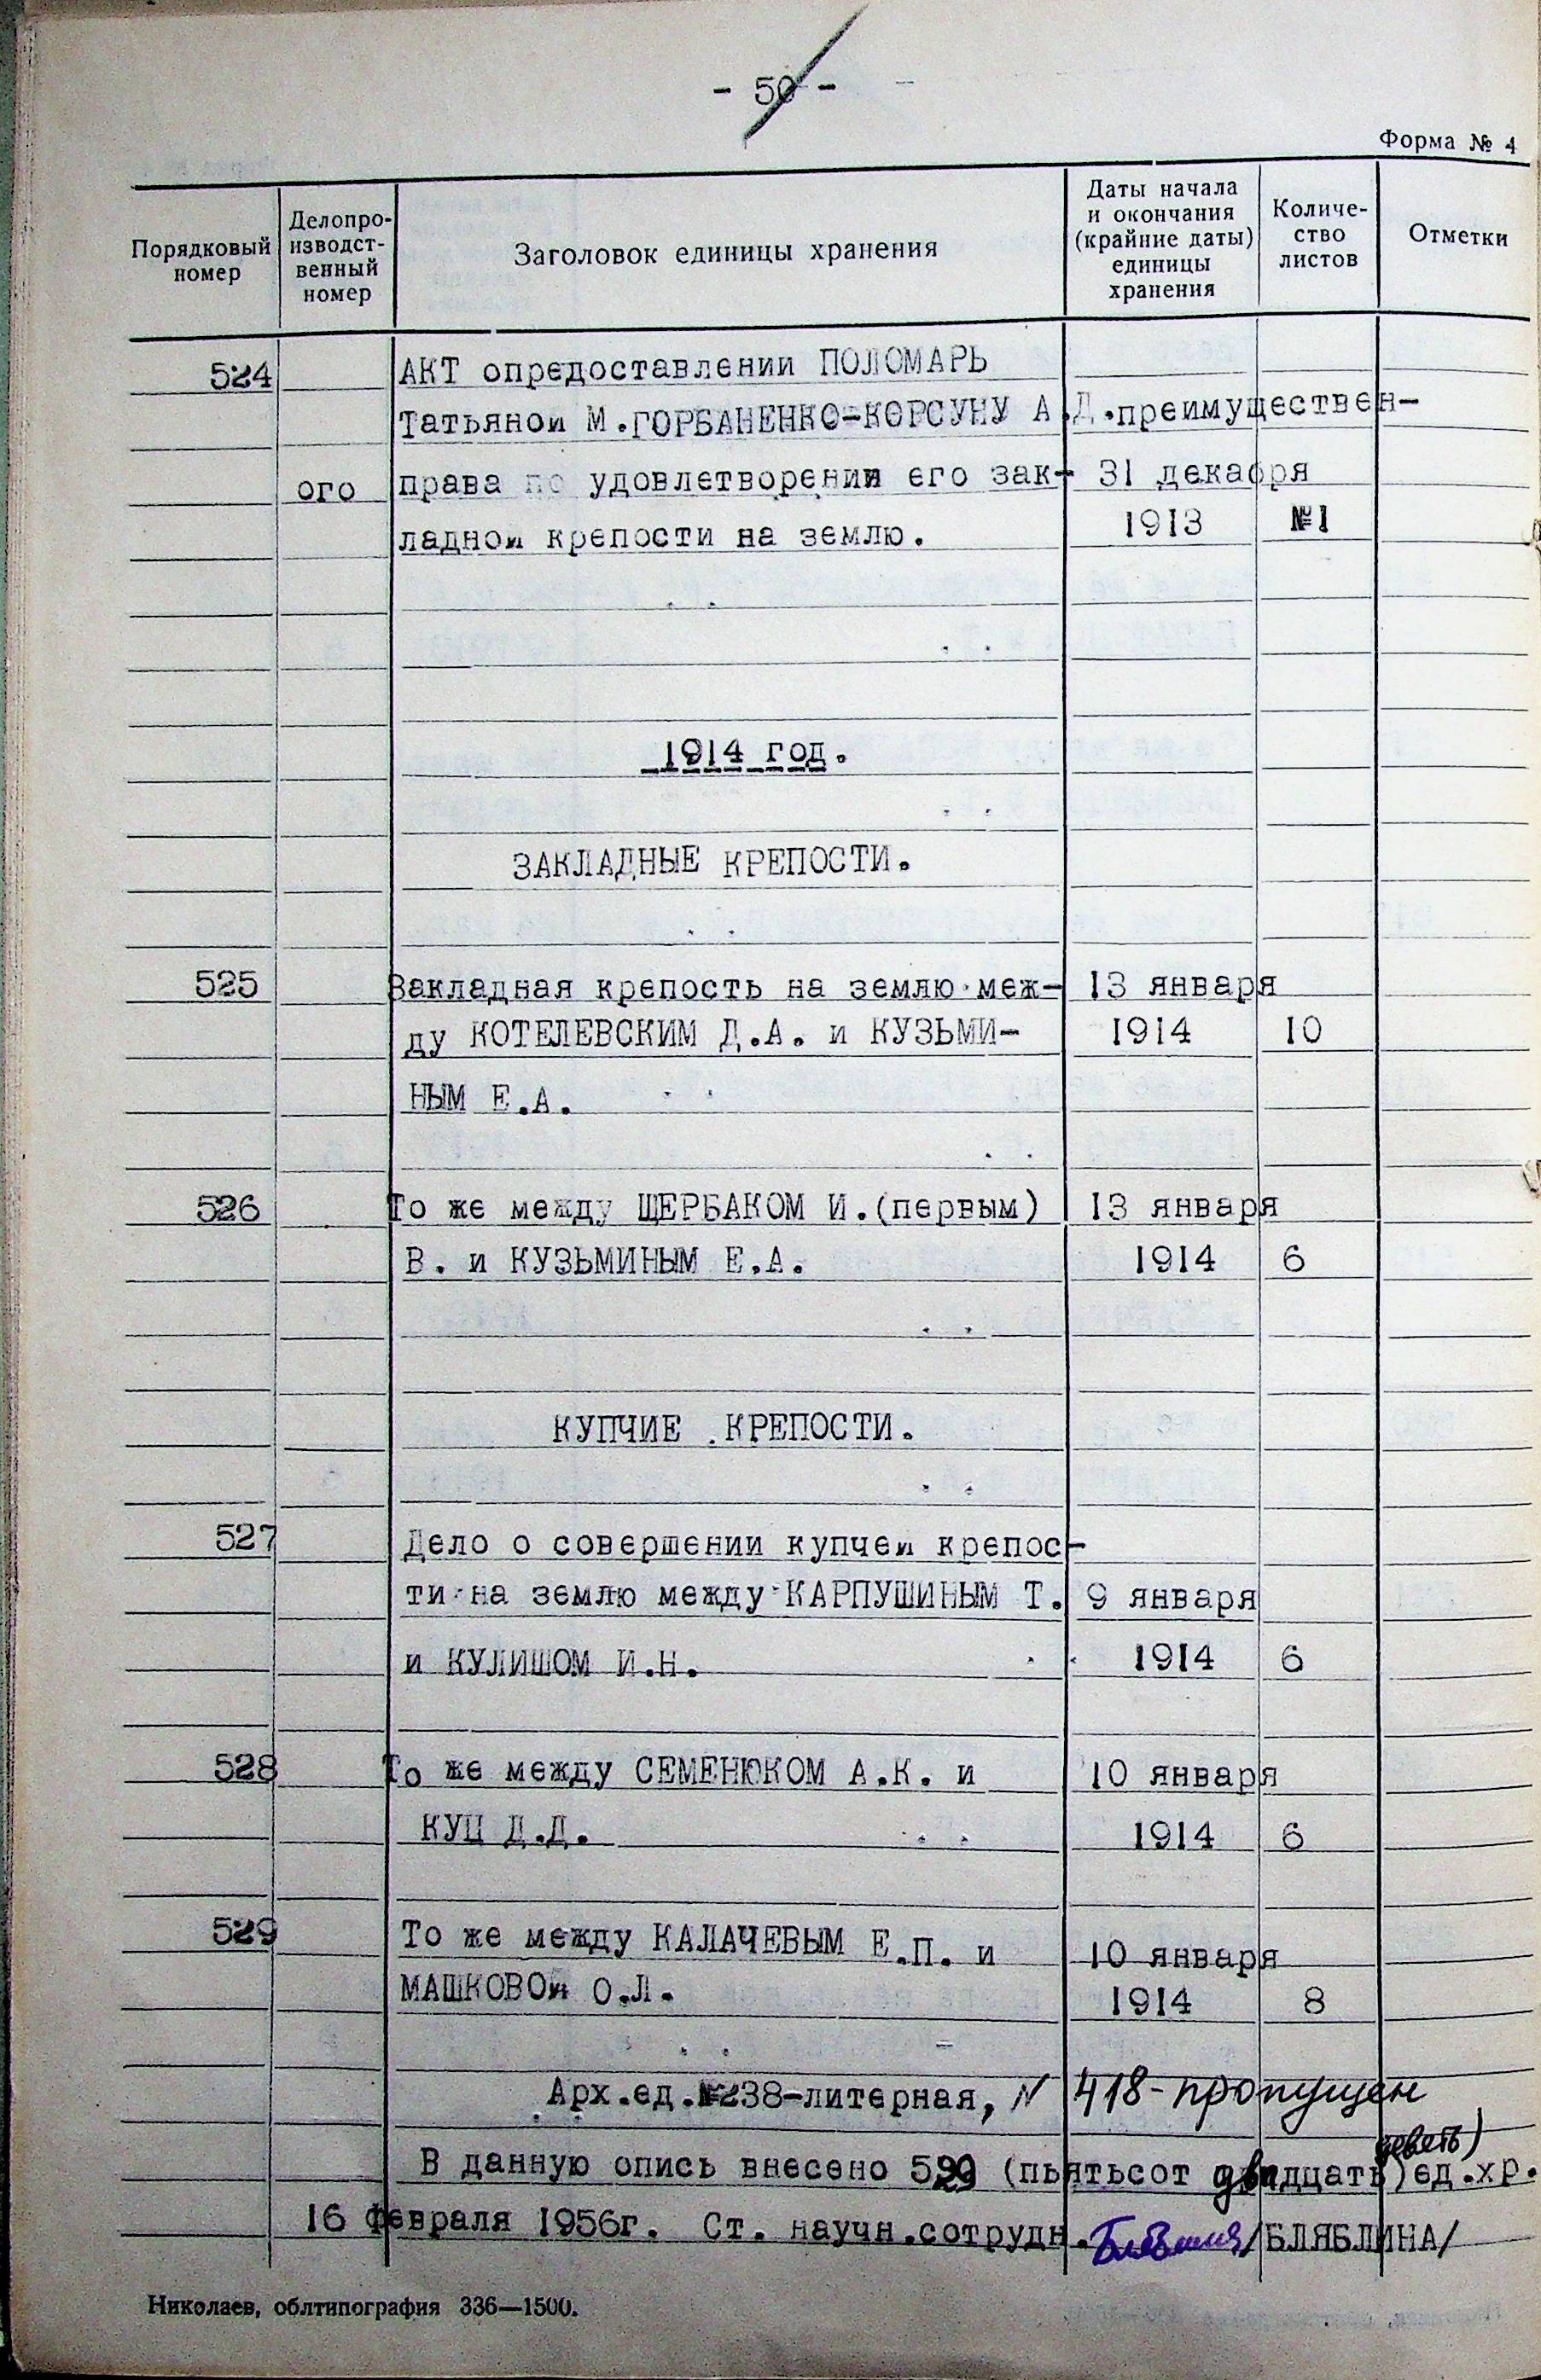 - 50 -
Форма № 4
Порядковый номер
Делопро-
изводст-
венный
номер
Заголовок единицы хранения
Даты начала
и окончания
(крайние даты)
единицы
хранения
Количе-
ство
листов
Отметки
524 АКТ опредоставлении ПОЛОМАРЬ
Татьяной М.ГОРБАНЕНКО-КОРСУНУ А.Д.преимуществен-
ого права по удовлетворении его зак- 31 декабря
ладной крепости на землю. 1913 №1
1914 год.
ЗАКЛАДНЫЕ КРЕПОСТИ.
525 Закладная крепость на землю меж- 13 января
ду КОТЕЛЕВСКИМ Д.А. и КУЗЬМИ- 1914 10
НЫМ Е.А.
526 То же между ЩЕРБАКОМ И.(первым) 13 января
В. и КУЗЬМИНЫМ Е.А. 1914 6
КУПЧИЕ КРЕПОСТИ.
527 Дело о совершении купчей крепос-
ти на землю между КАРПУШИНЫМ Т. 9 января
и КУЛИШОМ И.Н. 1914 6
528 То же между СЕМЕНЮКОМ А.К. и 10 января
КУЦ Д.Д. 1914 6
529 То же между КАЛАЧЕВЫМ Е.П. и 10 января
МАШКОВОй О.Л. 1914 8
Арх.ед.№238-литерная, N 418-пропущен
девять)
В данную опись внесено 529 (пьятьсот двадцать) ед.хр.
16 февраля 1956г. Ст. научн.сотрудн. /БЛЯБЛИНА/
Николаев, облтипография 336—1500.